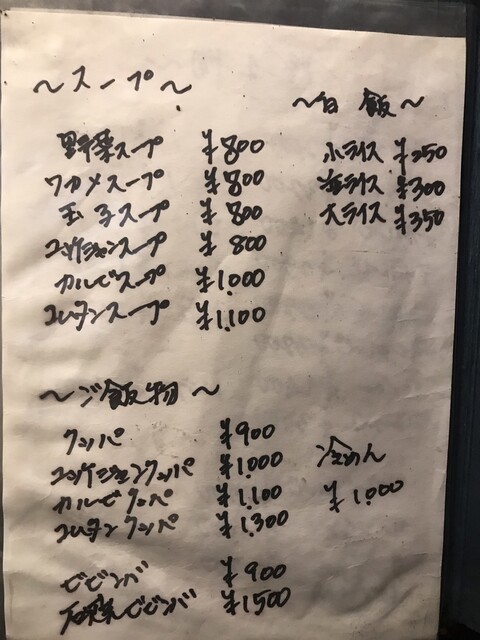 〜スープ〜
野菜スープ ¥800
ワカメスープ ¥800
玉子スープ ¥800
ユッケジャンスープ ¥800
カルビスープ ¥1,000
コムタンスープ ¥1,100
〜白飯〜
小ライス ¥250
ライス ¥300
大ライス ¥350
〜ご飯物〜
クッパ ¥900
ユッケジャンクッパ ¥1,000
カルビクッパ ¥1,100
コムタンクッパ ¥1,300
ビビンバ ¥900
石焼ビビンバ ¥1500
冷めん
¥1,000